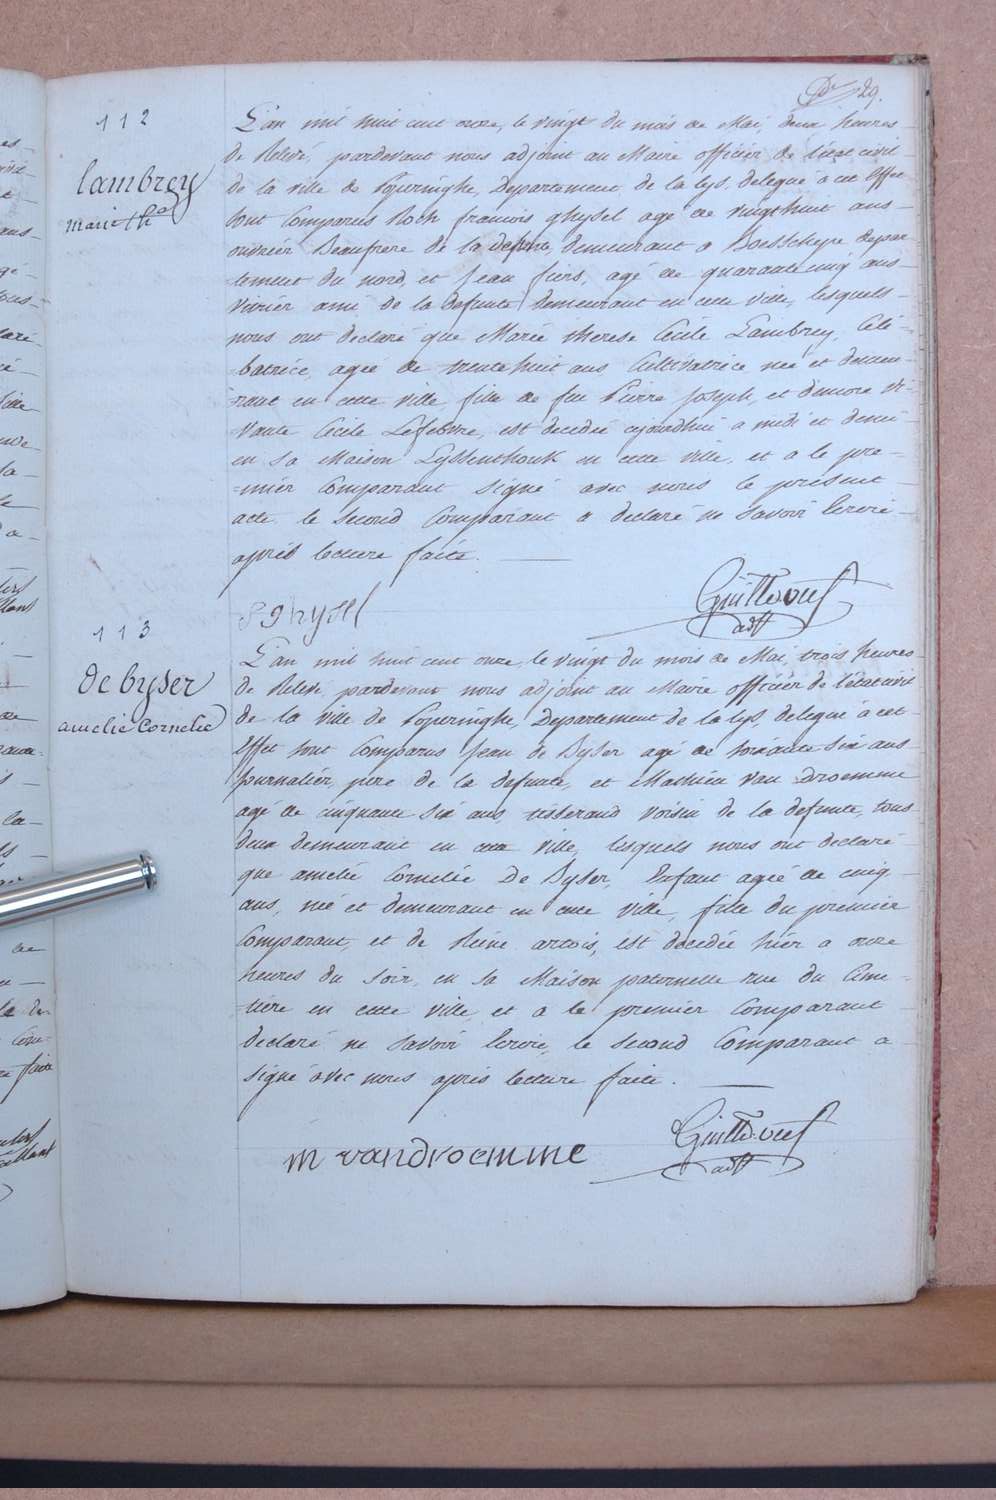 29.
112
Lambrey
marie th
L'an mil huit cent onze, le vingt du mois de Mai, deux heures
de Relevé, pardevant nous adjoint au Maire officier de l'état civil
de la ville de Poperinghe, Departement de la Lys, delegué a cet Effet
sont Comparus Roch francois ghysel agé de vingthuit ans
ouvriér Beaufrere de la defunte, demeurant a Boesschepe depar-
-tement du nord, et Jean fiers, agé de quarante cinq ans
ami de la defunte demeurant en cette ville, lesquels
nous ont declaré que Marie therese Cécile Lambrey, Céli-
-batrice, ageé de trente huit ans Cultivatrice neé et demeu-
-rant en cette ville, fille de feu Pierre Joseph, et d'encore vi-
-vante Cécile Lefebvre, est decedeé cejourdhui a midi et demi
en sa Maison Lyssenthouk en cette ville, et a le pre-
-miér Comparant signé avec nous le présent
acte, le second Comparant a declaré ne savoir Ecrire
aprés lecture faite.
ghysel
Guilldoeuf
adjt
113
de byser
amelie Cornelie
L'an mil huit cent onze, le vingt du mois de Mai, trois heures
de Relevé, pardevant nous adjoint au Maire officiér de l'état civil
de la ville de Poperinghe, Departement de la lys, delegué a cet
Effet sont Comparus Jean de Byser agé de soixante six ans
Journaliér, pere de la defunte, et Mathieu van Droemme
agé de cinquante six ans, tisserand voisin de la defunte, tous
deux demeurant en cette ville, lesquels nous ont declaré
que amelié Cornelie De Byser, Enfant ageé de cinq
ans, neé et demeurant en cette ville, fille du premier
Comparant, et de Reine artois, est decedeé hiér a onze
heures du soir, en sa Maison paternelle rue du Cime-
-tiére en cette ville, et a le premier Comparant
declaré ne savoir Ecrire, le second Comparant a
signé avec nous aprés lecture faite.
m vandroemme
Guilldoeuf
adjt